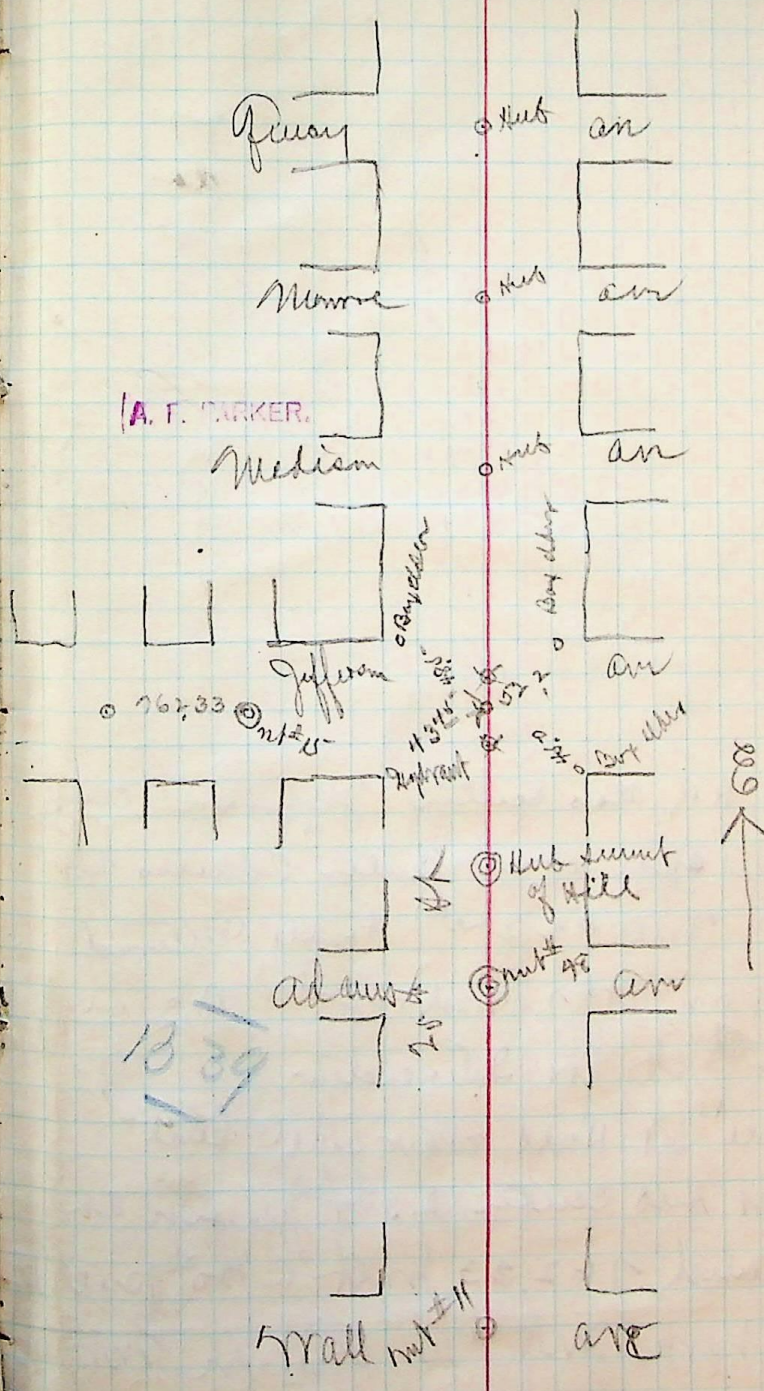 Quincy Hub av
Monroe Hub av
A. F. PARKER.
Madison Hub av
Box elder
Box elder
Jefferson av
762.33
nut # 15
43.45
52.2
Hydrant
Box elder
Hub summit
of Hill
Adams av
nut # 48
25 St
18 39
Wall nut # 11 ave